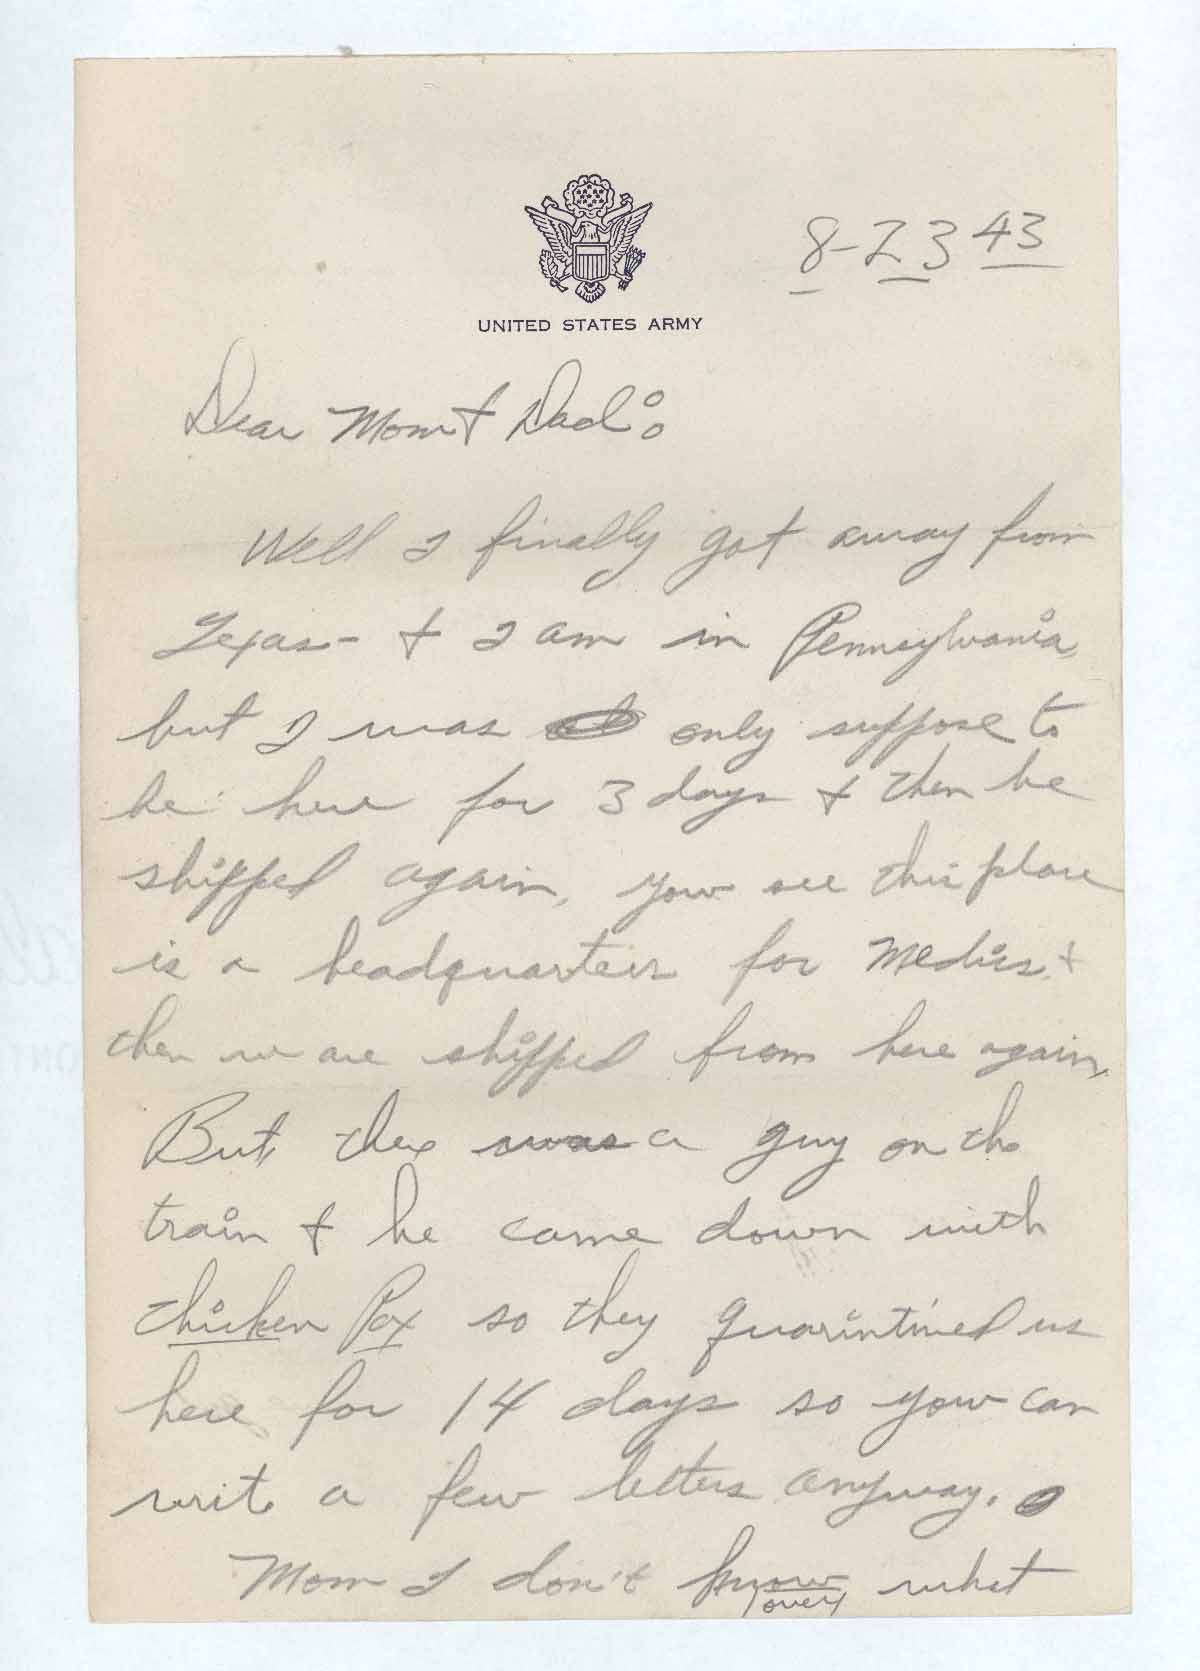 8-23 43
UNITED STATES ARMY
Dear Mom & Dad:
Well I finally got away from
Texas - & I am in Pennsylvania,
but I was only suppose to
be here for 3 days & then be
shipped again, you see this place
is a headquarters for Medics &
then we are shipped from here again.
But, ther was a guy on the
train & he came down with
chicken Pox so they quarintined us
here for 14 days so you can
write a few letters anyway.
Mom I don't know what
over